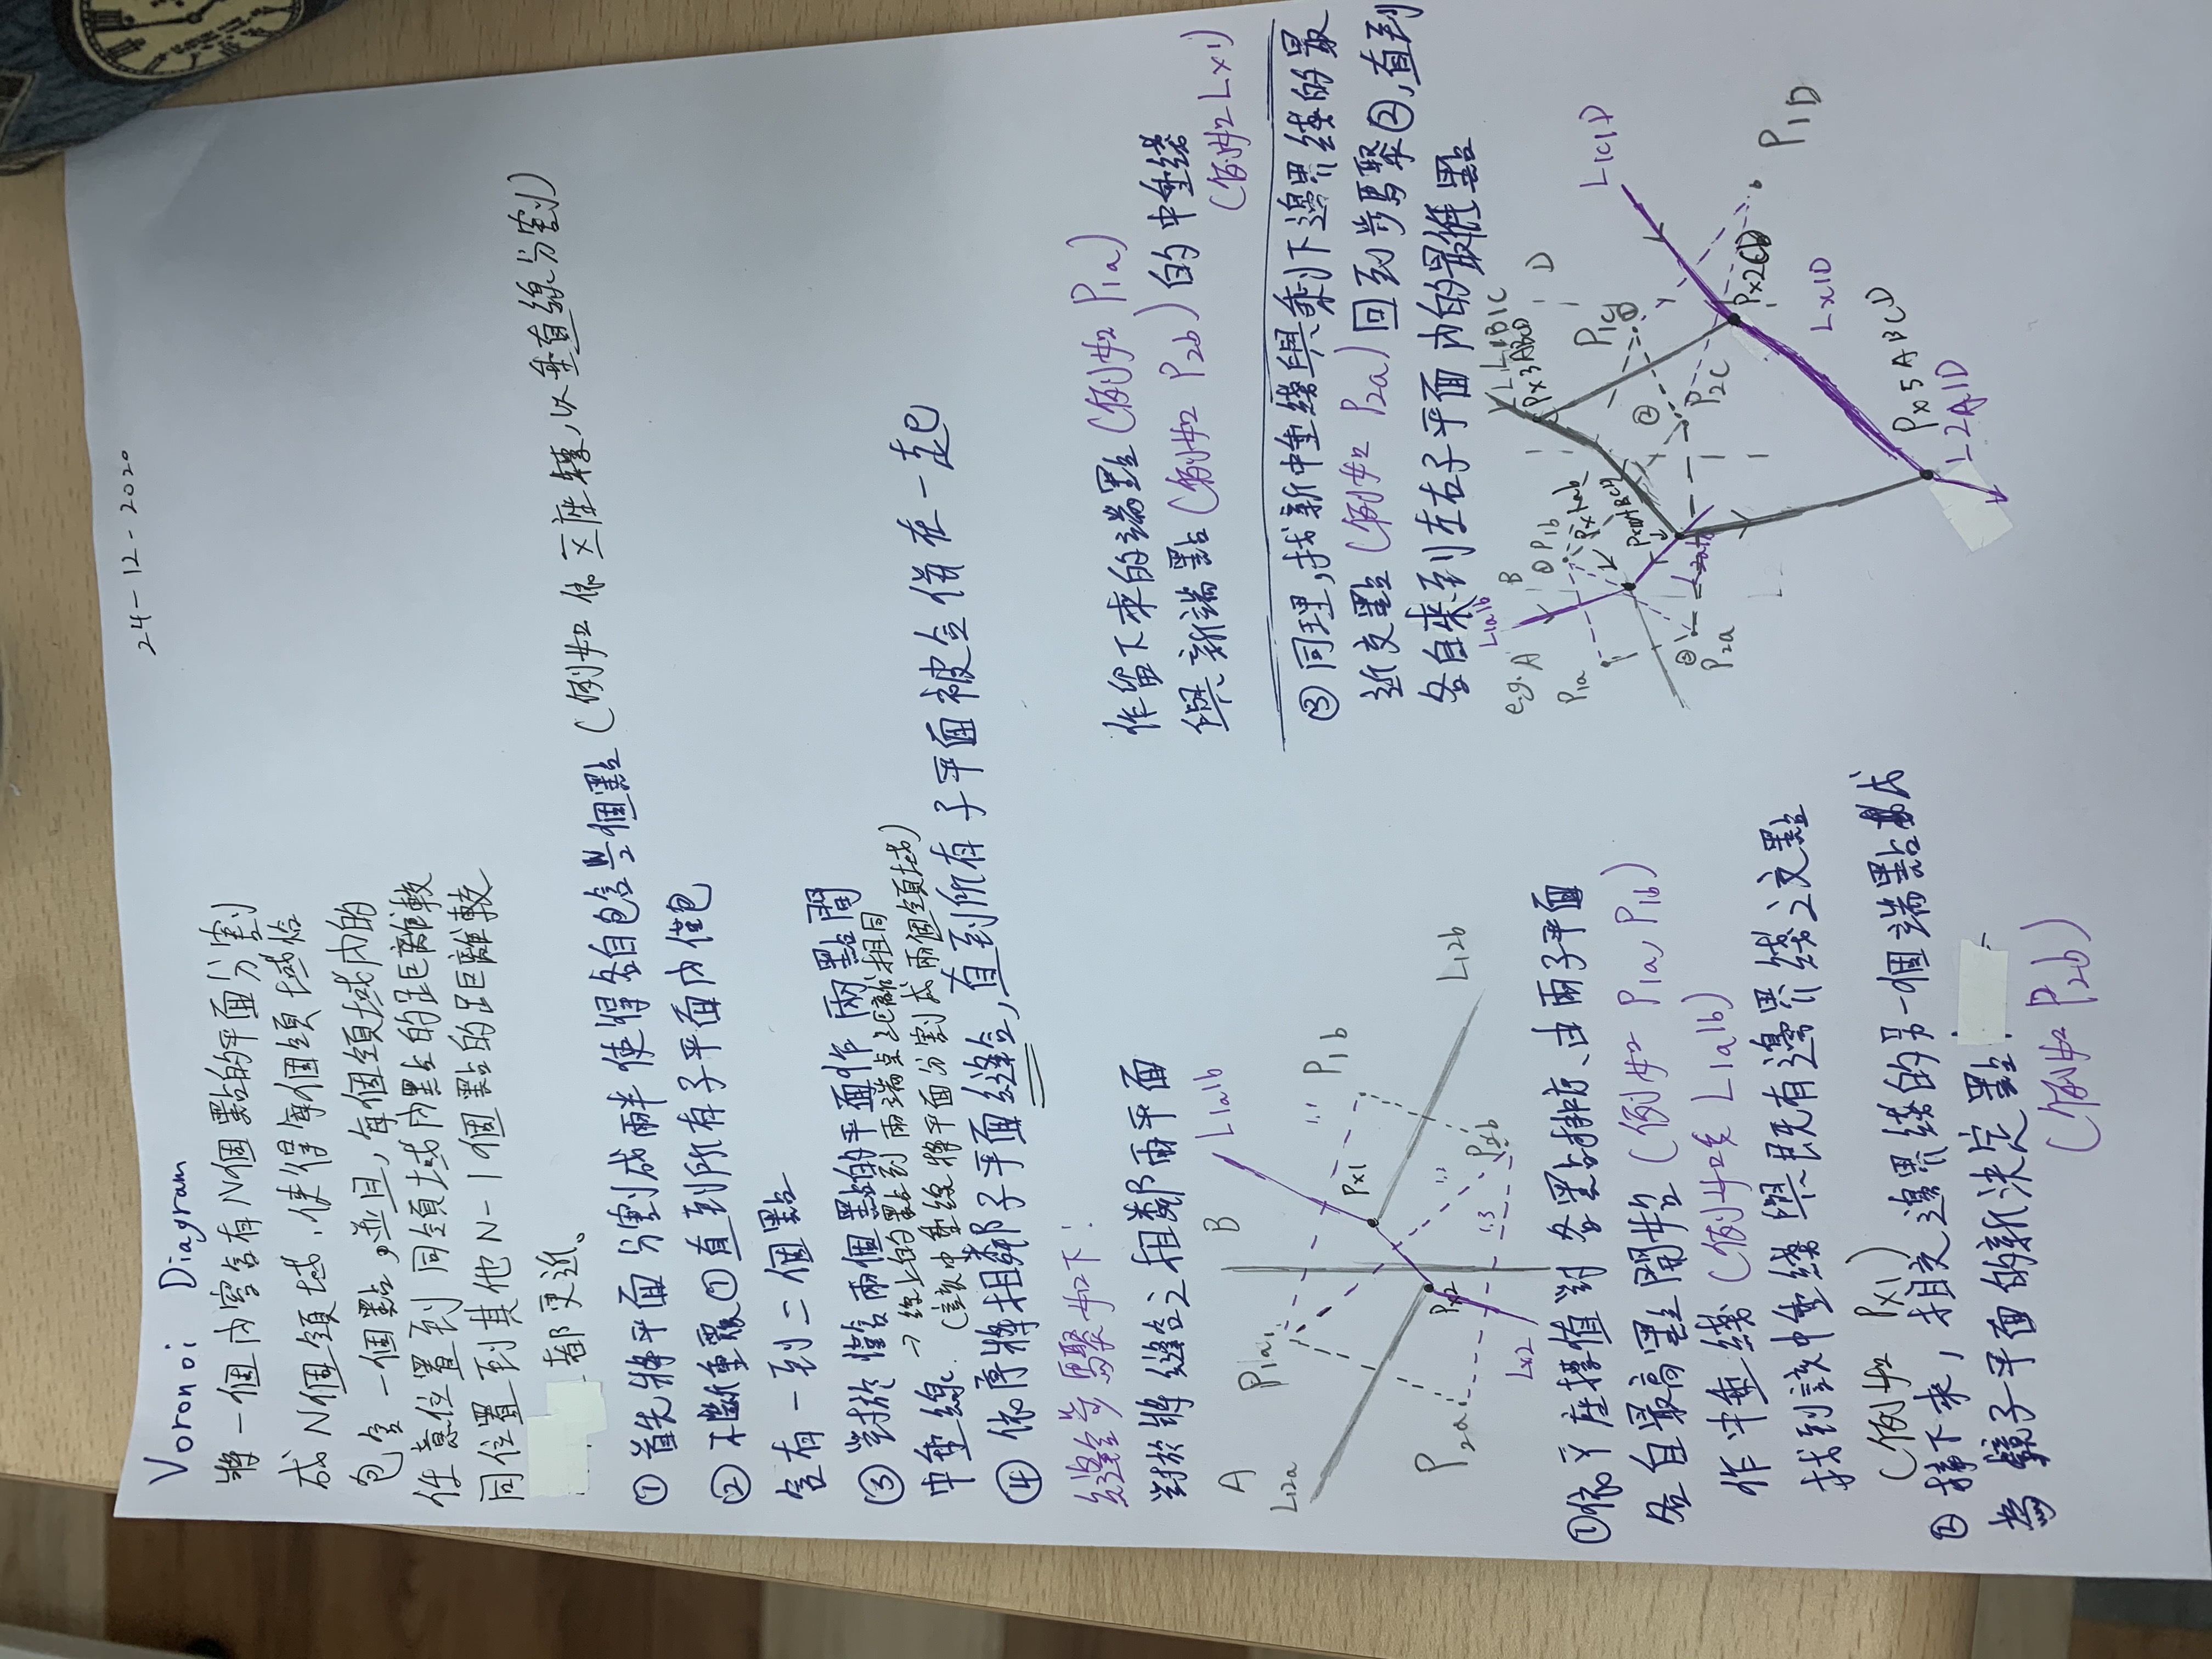 24-12-2020
Voronoi Diagram
將一個內容含有N個點的平面分割
成N個領域,使得每個領域恰
包含一個點,並且,每個領域內的
任意位置到同領域內點的距離較
同位置到其他N-1個點的距離較
都更近。
① 首先將平面分割成兩半使得各自包含N/2個點(例如依X座標,以垂直線分割)
② 不斷重覆①直到所有子平面內僅包
含有一到二個點
③ 對於僅含兩個點的平面作兩點間
中垂線 → 線上的點到兩端點距離相同
(該中垂線將平面分割成兩個領域)
④ 依序將相鄰子平面縫合,直到所有子平面被合併在一起
縫合步驟如下:
對於將縫合之相鄰兩平面
A
B
L1a1b
L12a
P1a
P1b
Px1
P2a
Px2
P2b
L12b
Lx2
1.1
1.2
1.3
①依Y座標值對各點排序、由兩子平面
各自最高點開始(例如 P1a, P1b)
作中垂綫(例如 L1a1b)
找到該中垂綫與既有邊界綫之交點
(例如 Px1)
② 接下來,相交邊界綫的另一個端點成
為 子平面的新決定點
(例如 P2b)
作留下來的端點(例如 P1a)
與新端點(例如 P2b)的中垂綫
(例如 Lx1)
③ 同理,找新中垂綫與剩下邊界綫的最
近交點(例如 P2a)回到步驟②,直到
各自來到左右子平面內的最低點
e.g.
L1a1b
A
B
Px3ABCD
D
P1a
① P1b
Px1ab
P1c
①
L1C1D
②
③
P2a
P2c
Px2CD
P1D
Lx1D
Px5ABCD
L2A1D